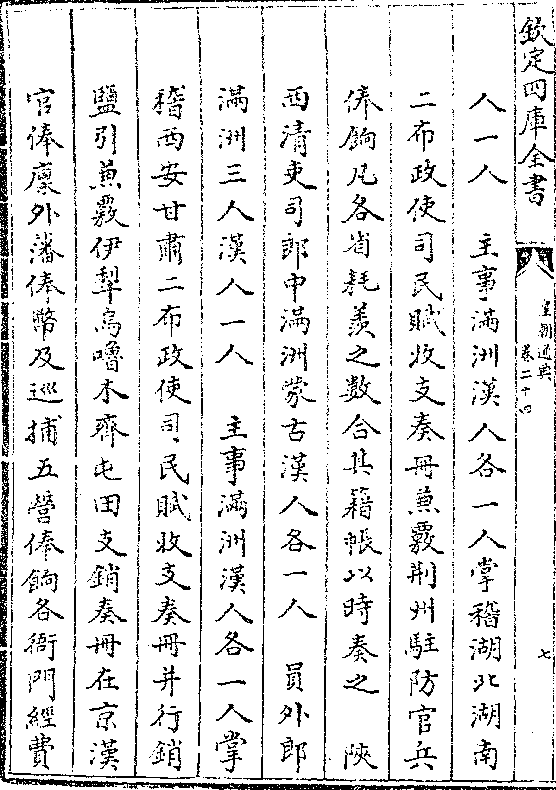 欽定四庫全書
皇朝通典
卷二十四
七
人一人　主事滿洲漢人各一人掌稽湖北湖南
二布政使司民賦收支奏冊兼覈荆州駐防官兵
俸餉凡各省耗羨之數合其籍帳以時奏之　陜
西清吏司郎中滿洲蒙古漢人各一人　員外郎
滿洲三人漢人一人　主事滿洲漢人各一人掌
稽西安甘肅二布政使司民賦收支奏冊并行銷
鹽引兼覈伊犂烏嚕木齊屯田支銷奏冊在京漢
官俸廩外藩俸幣及巡捕五營俸餉各衙門經費